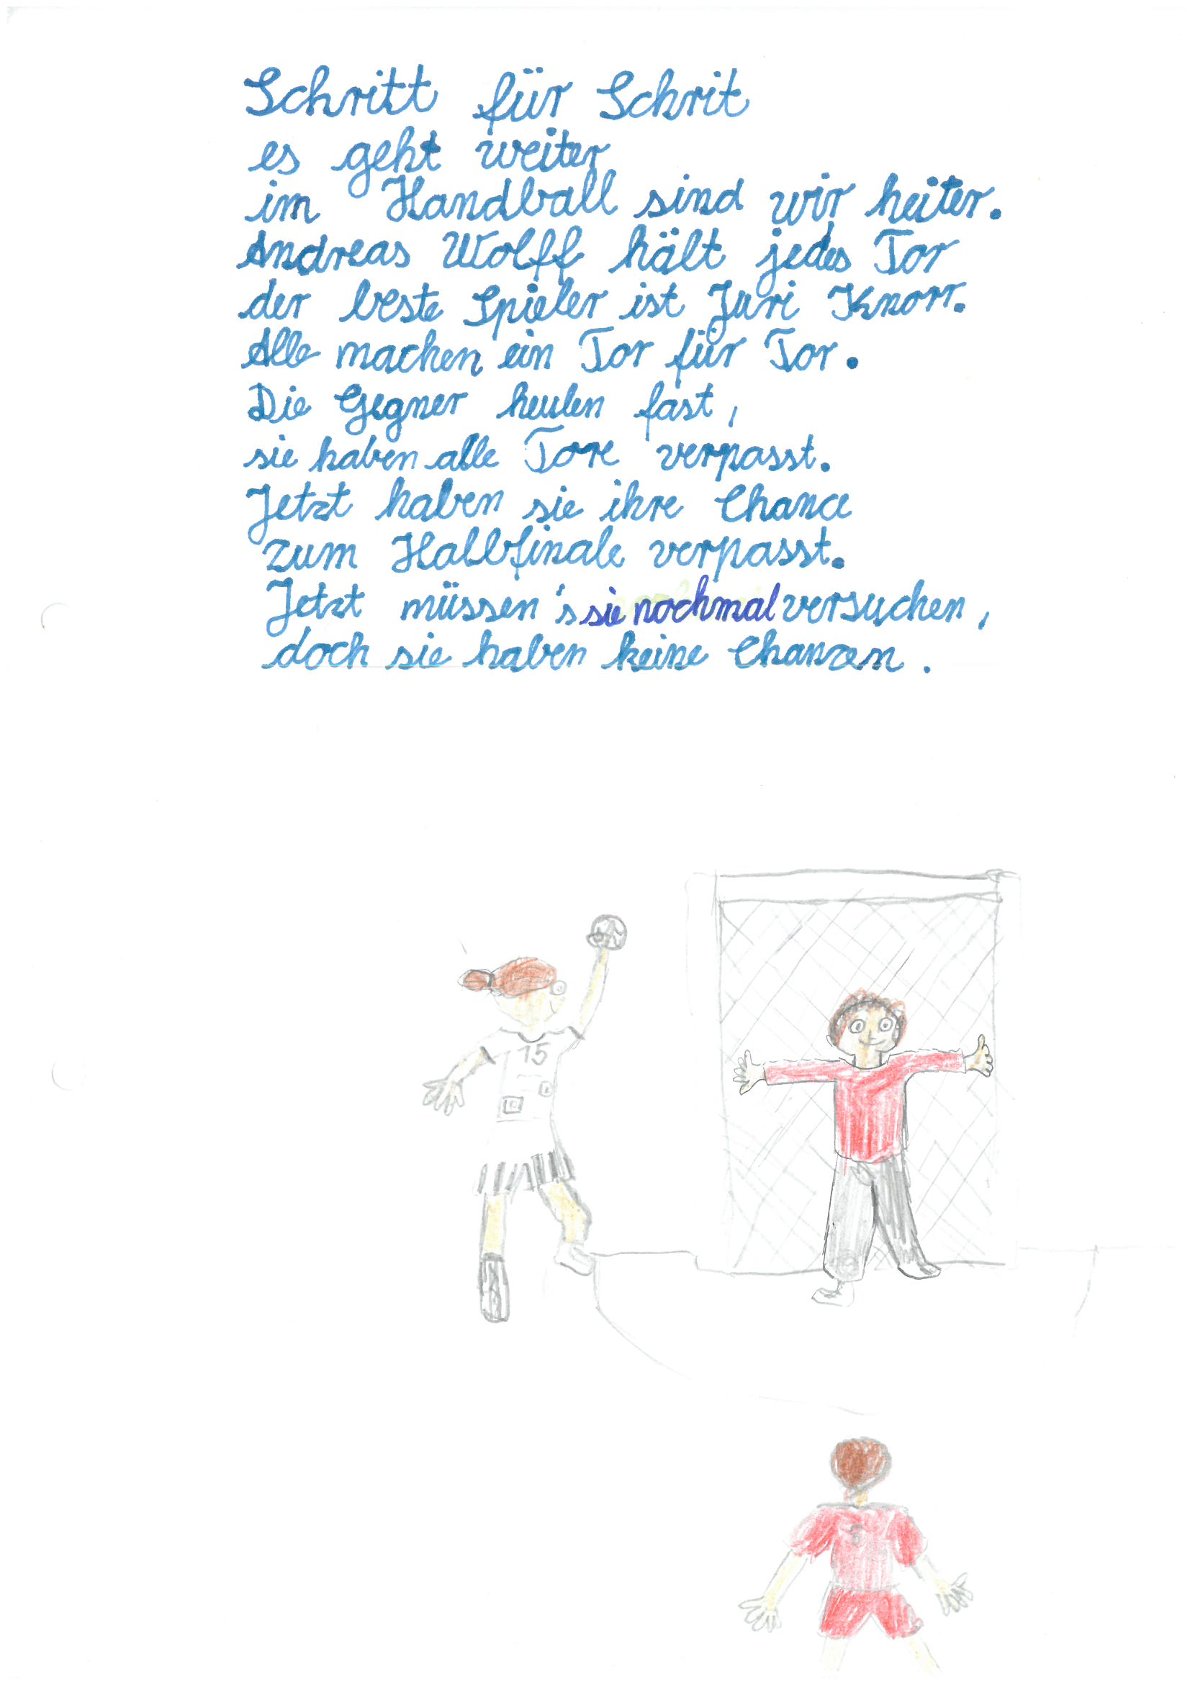 Schritt für Schrit
es geht weiter
im Handball sind wir heiter.
Andreas Wolff hält jedes Tor
der beste Spieler ist Juri Knorr.
Alle machen ein Tor für Tor.
Die Gegner heulen fast,
sie haben alle Tore verpasst.
Jetzt haben sie ihre Chance
zum Halbfinale verpasst.
Jetzt müssen's sie nochmal versuchen,
doch sie haben keine Chanzen.
15